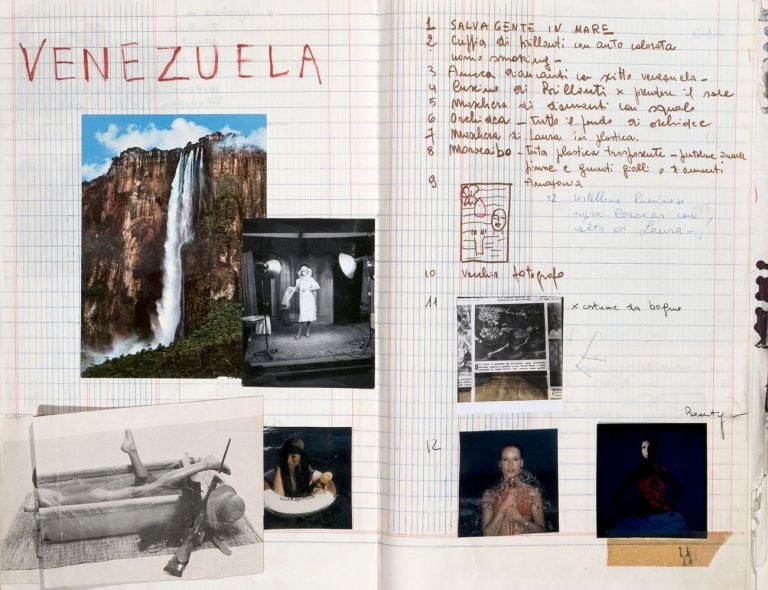 VENEZUELA
1 SALVAGENTE IN MARE
2 Cuffia di brillanti con auto colorata
uomo smoking -
3 Amaca diamanti con scritto venezuela -
4 Cuscino di Brillanti x prendere il sole
5 Maschera di diamanti con squalo
6 Orchidea - tutto il fondo di orchidee
7 Maschera di Laura in plastica.
8 Maracaibo - Tuta plastica trasparente -
pinne e guanti gialli o diamanti
9 Amazonia
12
sopra Caracas con
volto di Laura -
10 Vecchio fotografo
11 x costume da bagno
Beauty
12